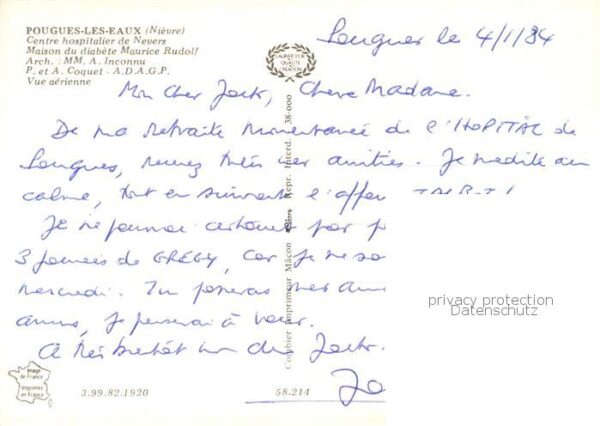 POUGUES-LES-EAUX (Nièvre)
Centre hospitalier de Nevers
Maison du diabète Maurice Rudolf
Arch. : MM. A. Inconnu
P. et A. Coquet - A.D.A.G.P.
Vue aérienne
LABEL D'OR QUALITÉ CRÉATION
Pougues le 4/1/84
Mon Cher Jack, Chere Madame.
De ma Retraite momentanée de l'HOPITAL de
Pougues, recevez mes amities. Je médite au
calme, tout en suivant l'affai
Je ne pourrai par p
3 journées de GREGY, car je ne
mercredi. Tu poseras mes ami
amis, je penserai à vous.
A très bientôt mon cher Jack.
Jo
Combier Imprimeur Mâcon
Repr. Interd. 38-000
privacy protection
Datenschutz
Image de France
Imprimée en France
3.99.82.1920
58.214